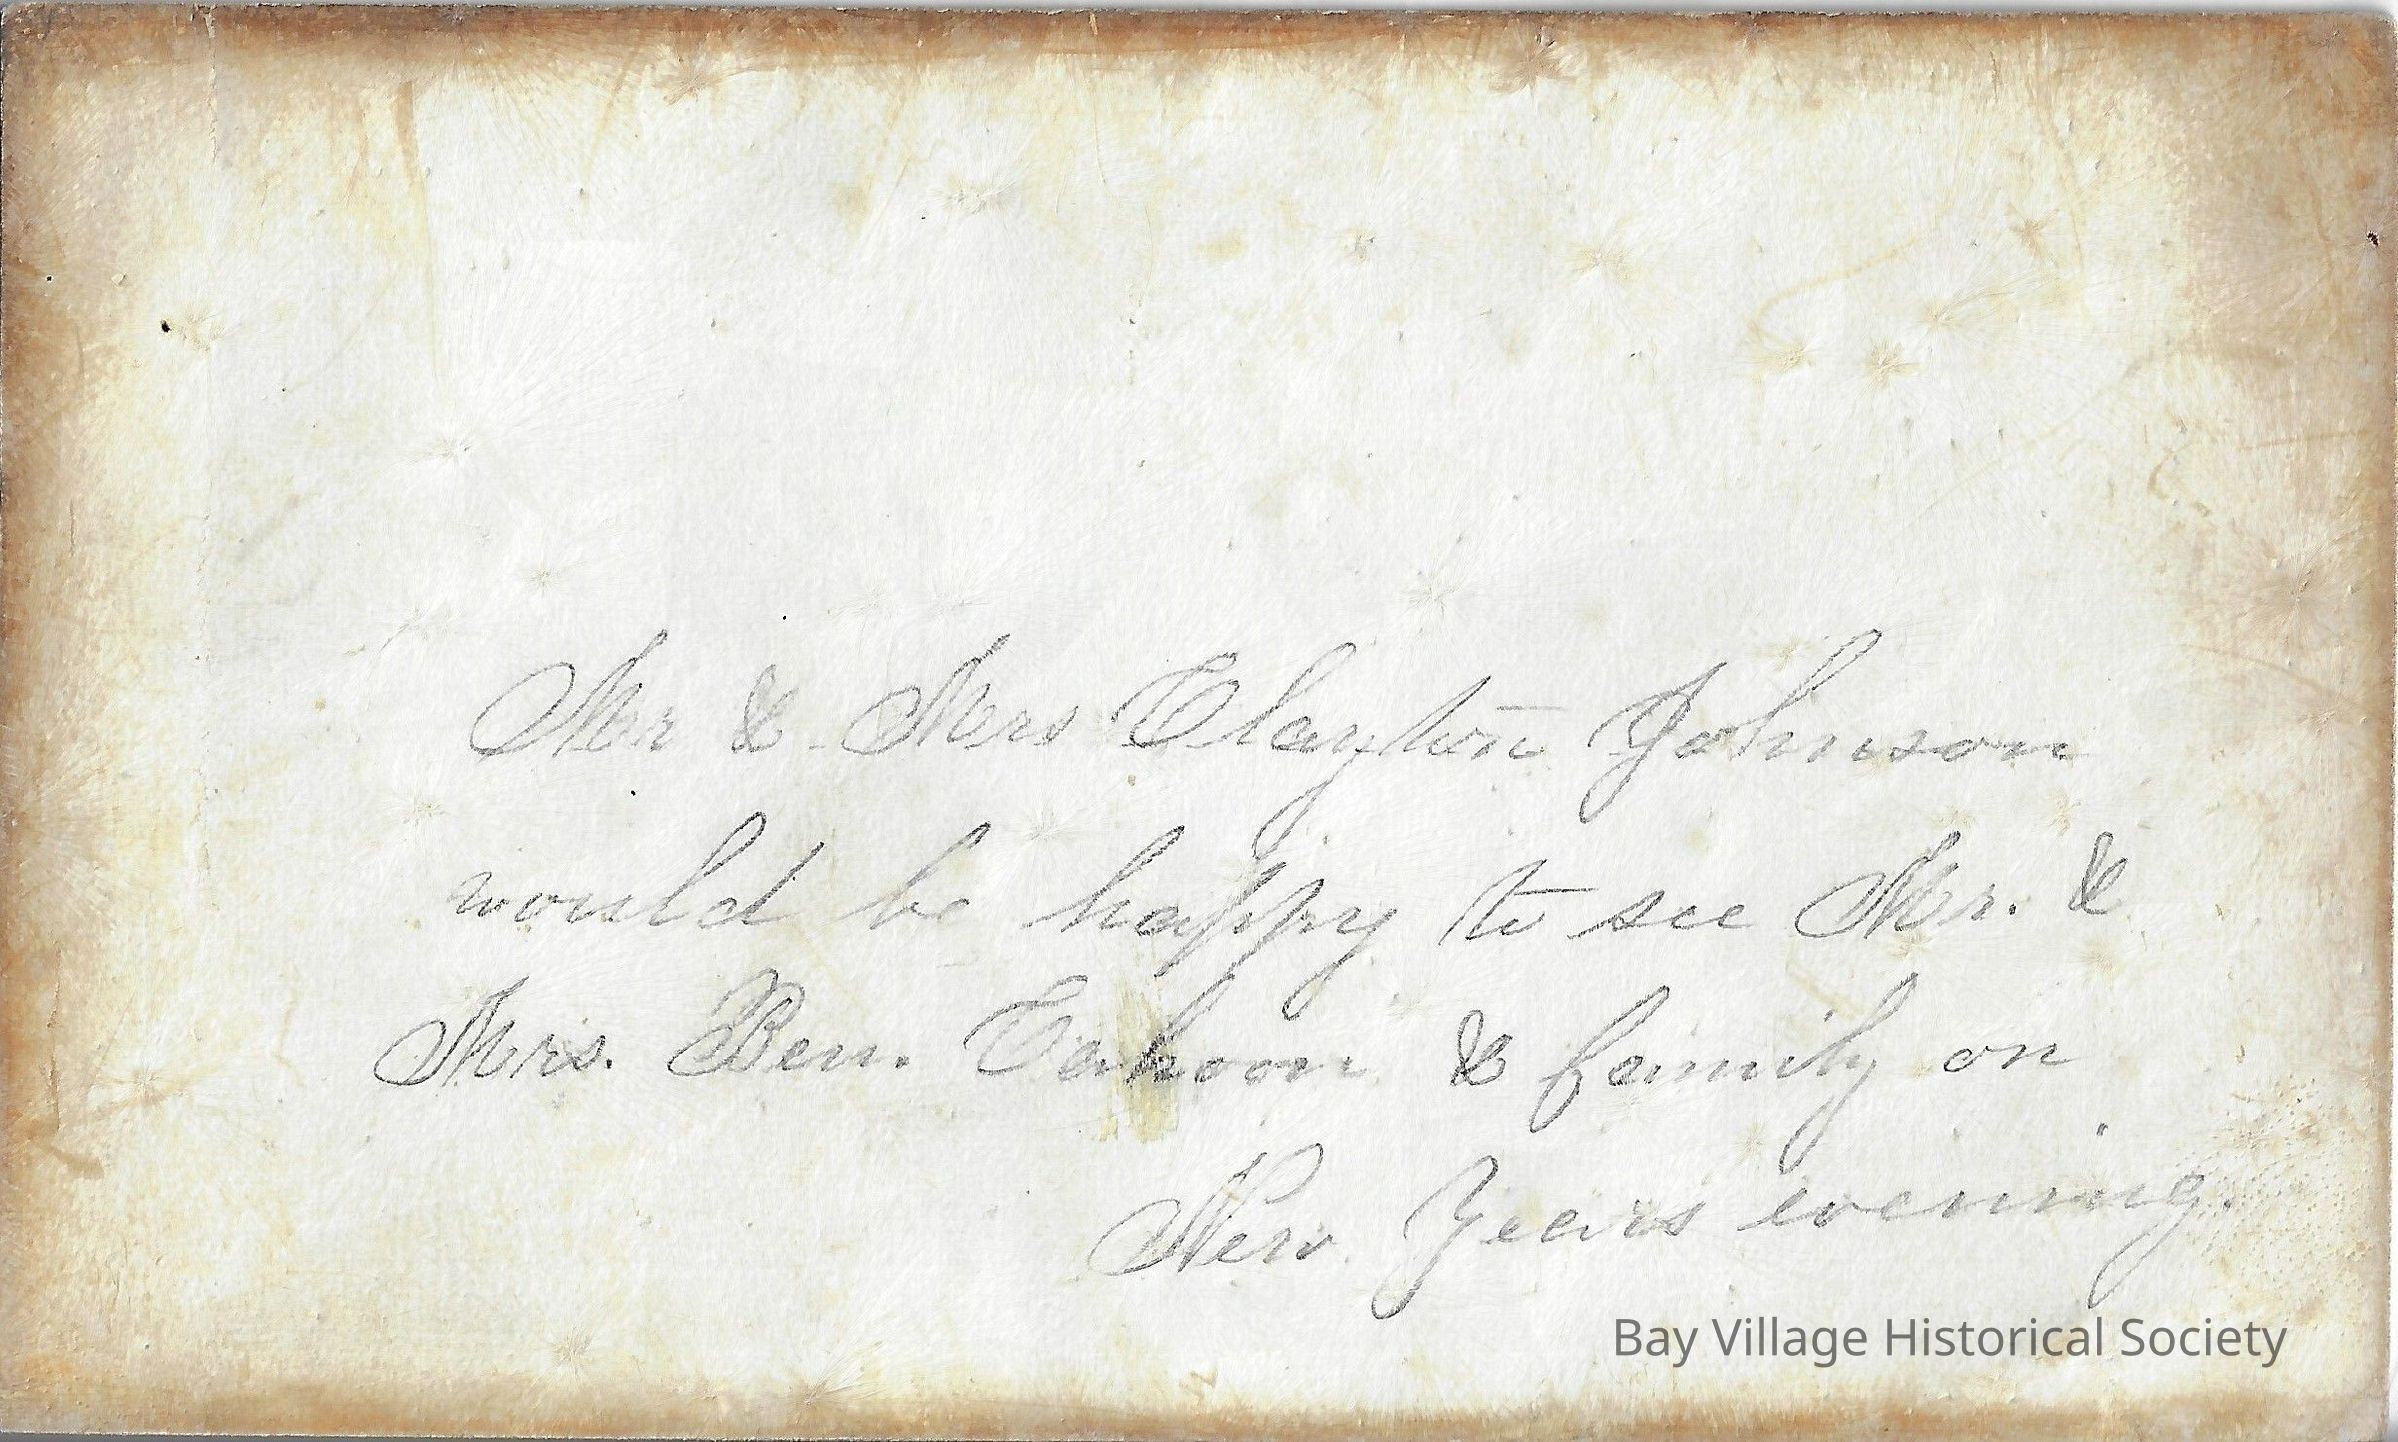 Mr & Mrs Clayton Johnson
would be happy to see Mr. &
Mrs. Ben. Cahoon & family on
New Years evening.
Bay Village Historical Society